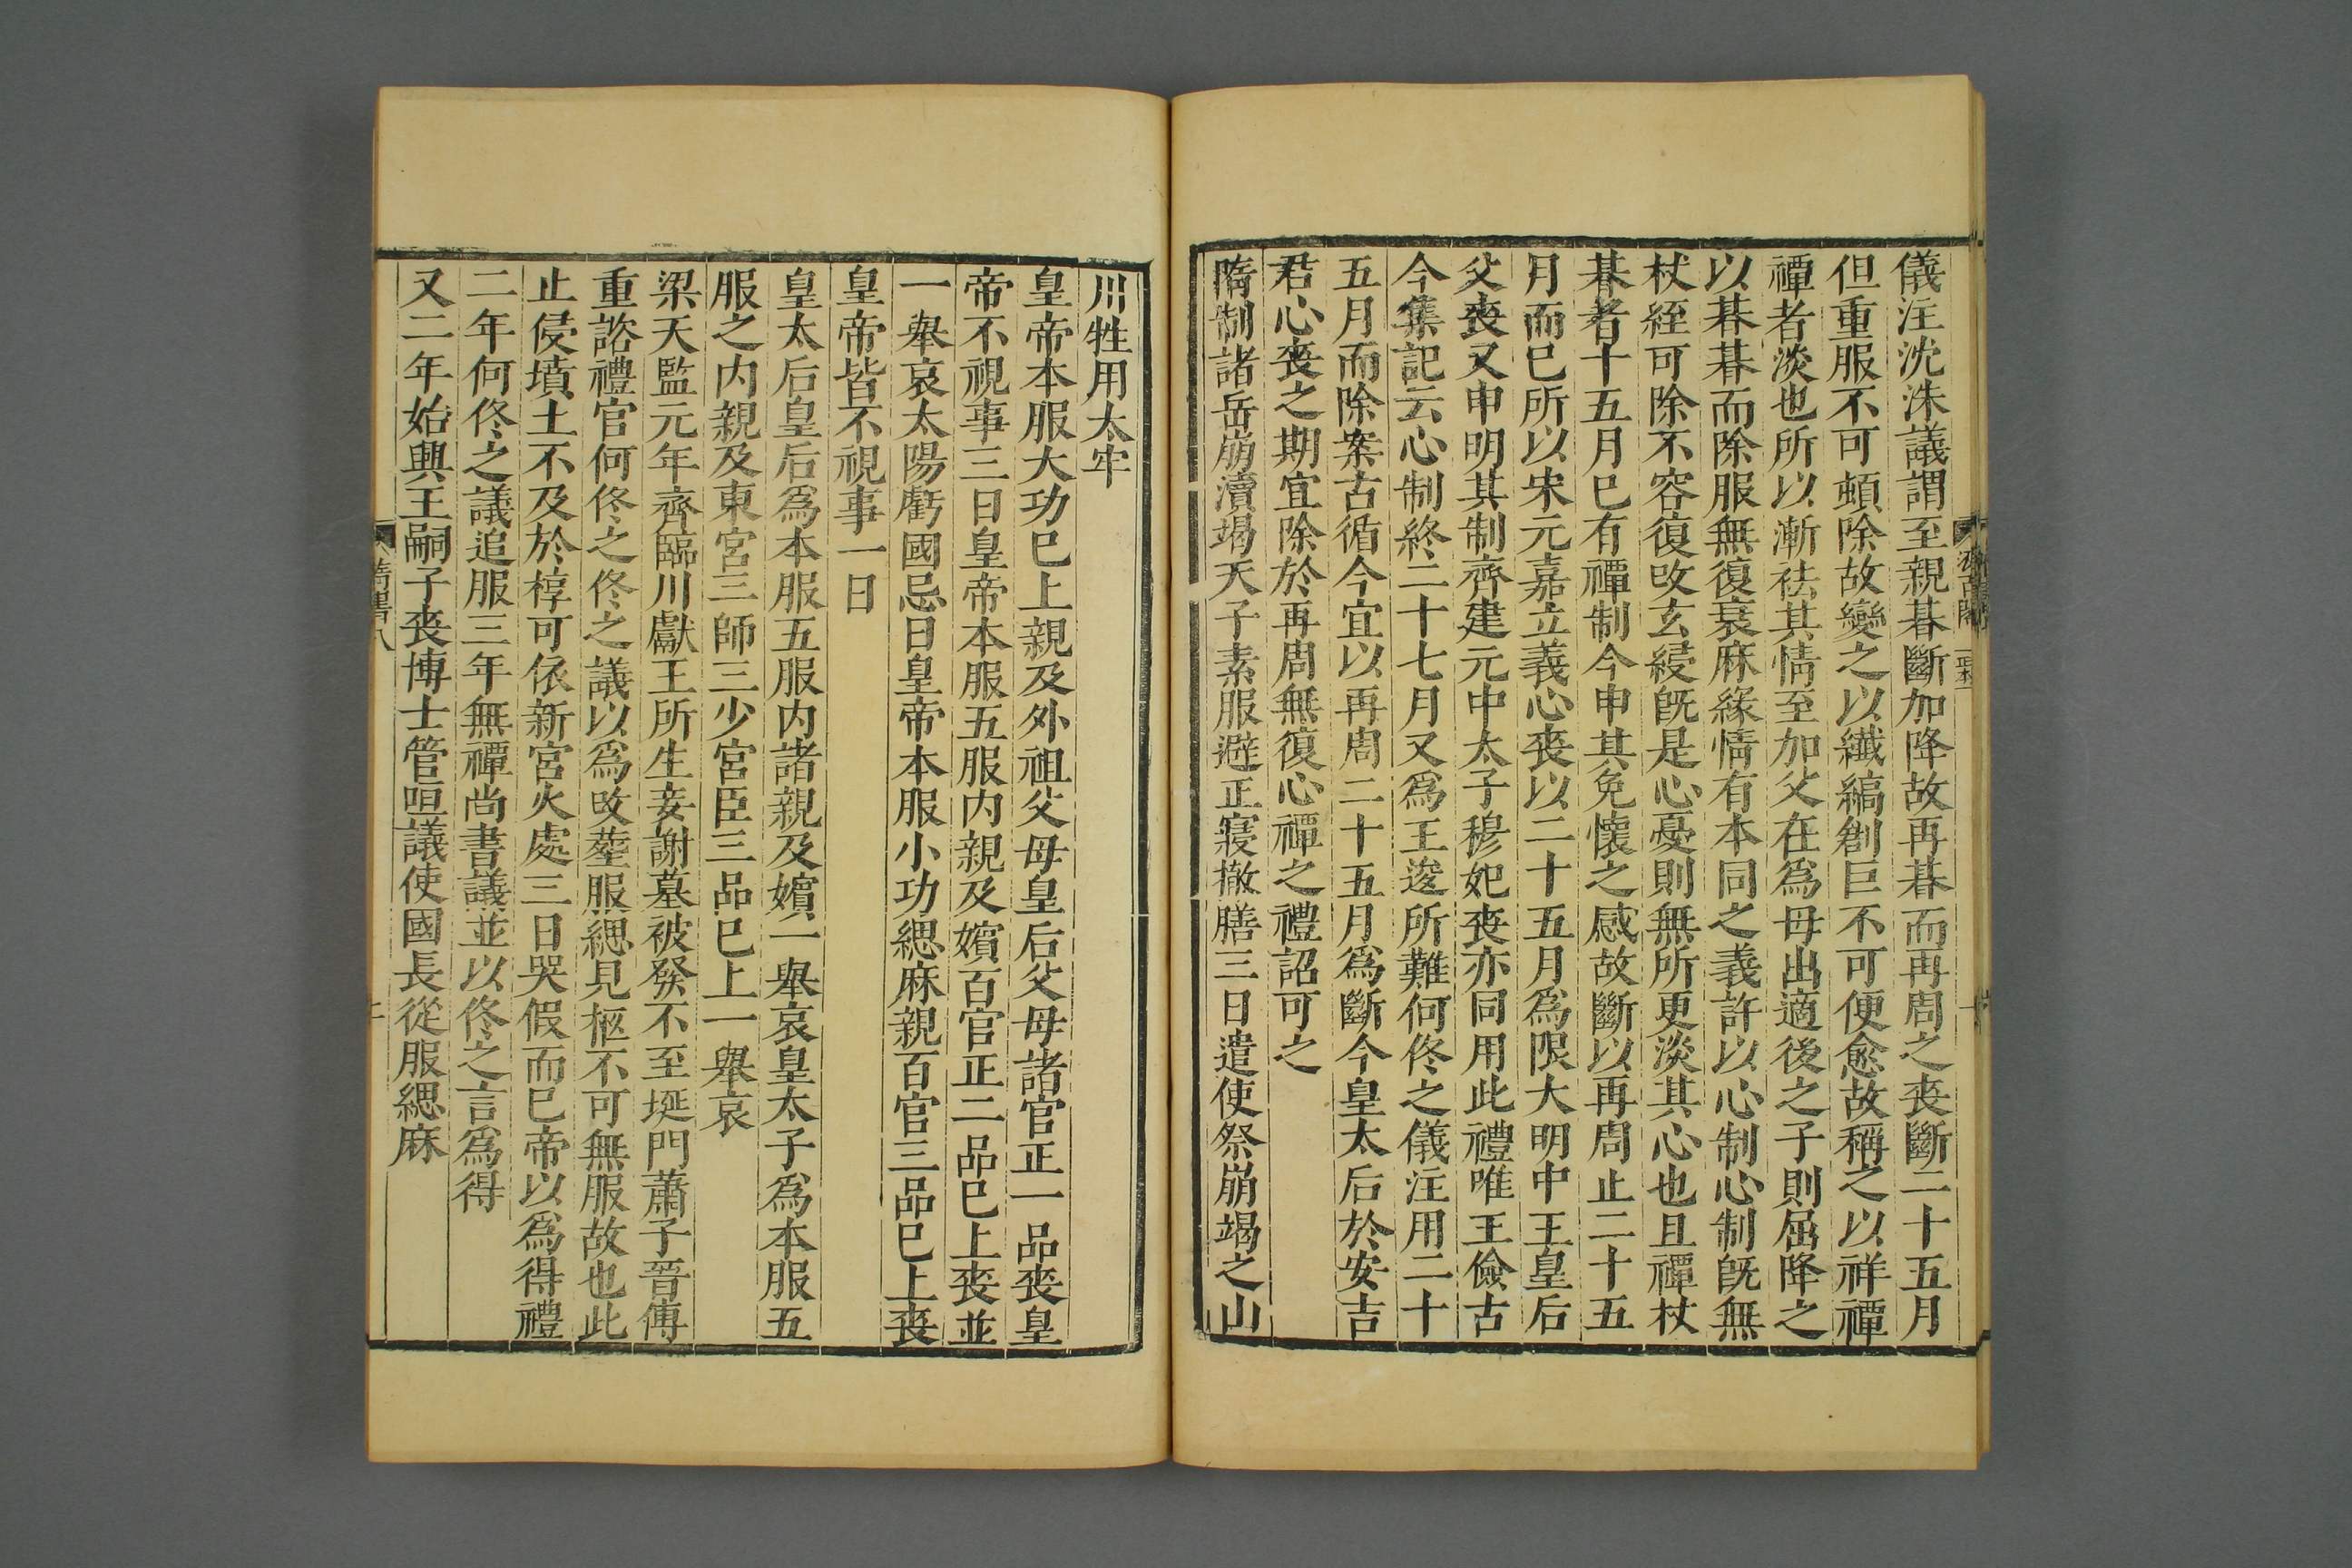 儀注沈洙議謂至親朞斷加降故再朞而再周之喪斷二十五月
但重服不可頓除故變之以纖縞創巨不可便愈故稱之以祥禫
禫者淡也所以漸祛其情至加父在爲母出適後之子則屈降之
以朞朞而除服無復衰麻緣情有本同之義許以心制心制旣無
杖絰可除不容復改玄綅旣是心憂則無所更淡其心也且禫杖
朞者十五月已有禫制今申其免懷之感故斷以再周止二十五
月而已所以宋元嘉立義心喪以二十五月爲限大明中王皇后
父喪又申明其制齊建元中太子穆妃喪亦同用此禮唯王儉古
今集記云心制終二十七月又爲王逡所難何佟之儀注用二十
五月而除案古循今宜以再周二十五月爲斷今皇太后於安吉
君心喪之期宜除於再周無復心禫之禮詔可之
隋制諸岳崩瀆竭天子素服避正寢撤膳三日遣使祭崩竭之山
川牲用太牢
皇帝本服大功已上親及外祖父母皇后父母諸官正一品喪皇
帝不視事三日皇帝本服五服内親及嬪百官正二品已上喪並
一舉哀太陽虧國忌日皇帝本服小功緦麻親百官三品已上喪
皇帝皆不視事一日
皇太后皇后爲本服五服内諸親及嬪一舉哀皇太子爲本服五
服之内親及東宮三師三少宮臣三品已上一舉哀
梁天監元年齊臨川獻王所生妾謝墓被發不至埏門蕭子晉傳
重諮禮官何佟之佟之議以爲改葬服緦見柩不可無服故也此
止侵墳土不及於椁可依新宮火處三日哭假而已帝以爲得禮
二年何佟之議追服三年無禫尚書議並以佟之言爲得
又二年始興王嗣子喪博士管咺議使國長從服緦麻
隋書八